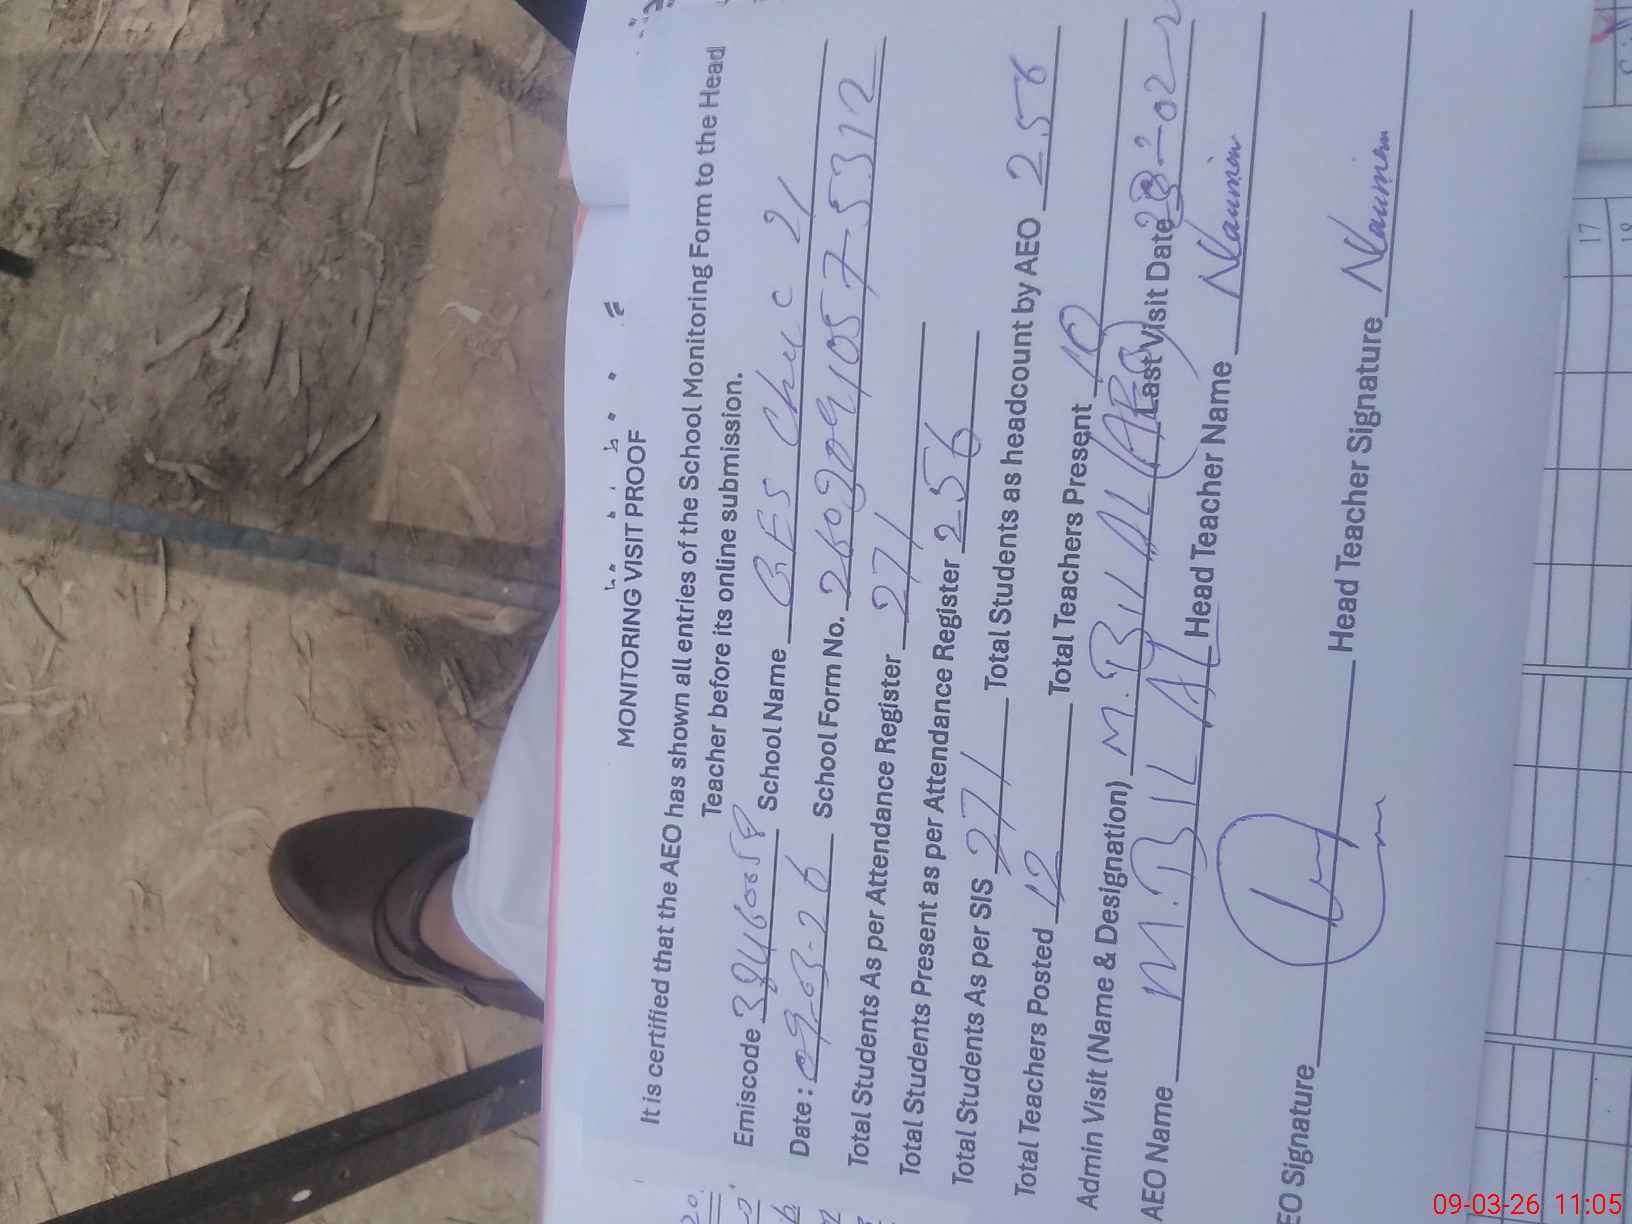 MONITORING VISIT PROOF
It is certified that the AEO has shown all entries of the School Monitoring Form to the Head
Teacher before its online submission.
Emiscode 38460058 School Name GES Chuc 21
Date: 09-03-26 School Form No.
Total Students As per Attendance Register 271
Total Students Present as per Attendance Register 256
Total Students As per SIS 271 Total Students as headcount by AEO 256
Total Teachers Posted 12 Total Teachers Present 10
Admin Visit (Name & Designation) M. BILAL (AEO) Last Visit Date
AEO Name M. BILAL Head Teacher Name
EO Signature Head Teacher Signature
17
18
09-03-26 11:05